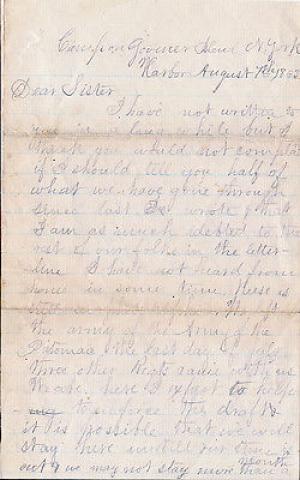 Camp on Govenor Iland N. York
Harbor August 7th 1863
Dear Sister
I have not written to
you in a long while but I
think you would not complain
if I should tell you half of
what we have gone through
since last I wrote & that
I am as much indebted to the
rest of our folks in the letter
line I have not heard from
home in some time
the army of the Army of the
Potomac the last day of July
three other Regts came with us
We are here I expect to help
to enforce the draft &
it is possible that we will
stay here untill our time is
out & we may not stay more than a
month